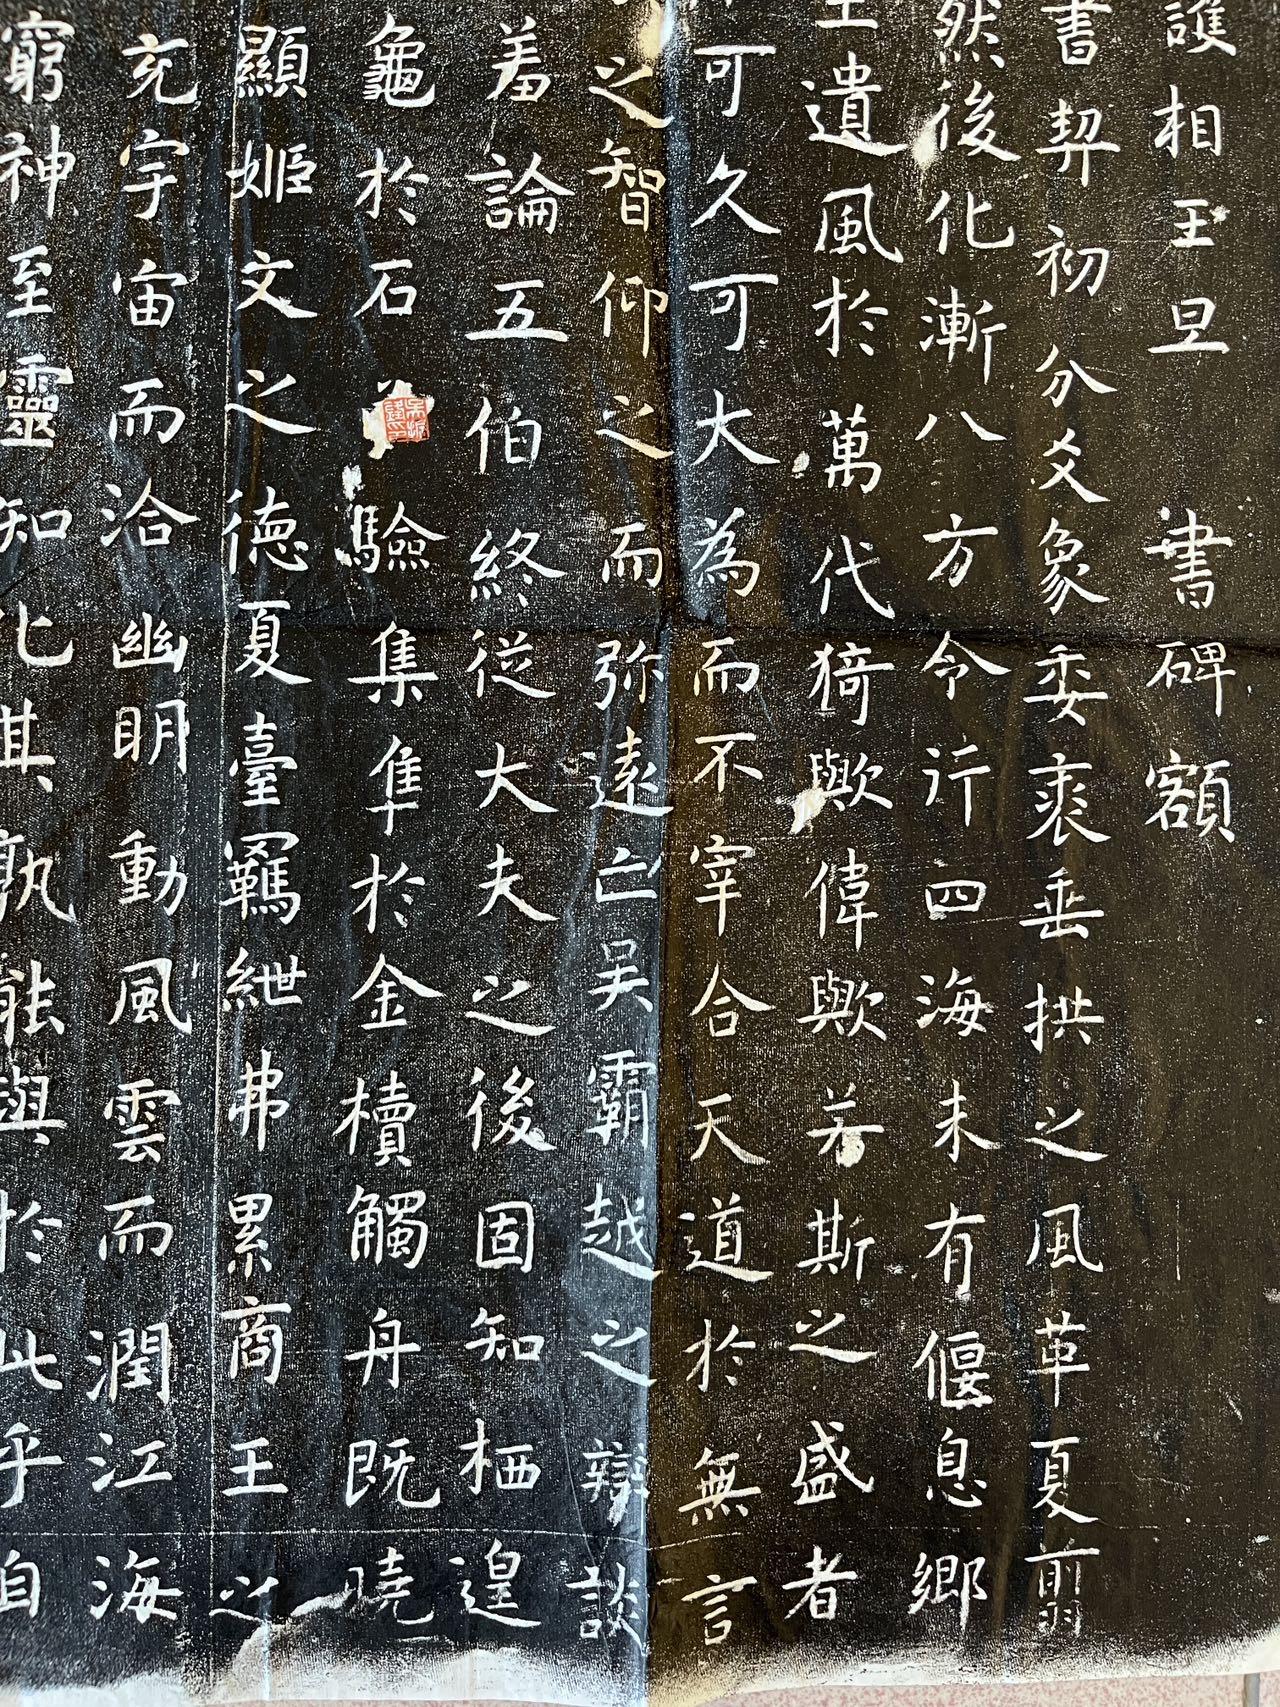 護相王旦書碑額
書契初分爻象委裘垂拱之風革夏翦
然後化漸八方令行四海未有偃息鄉
王遺風於萬代猗歟偉歟若斯之盛者
可久可大為而不宰合天道於無言
之智仰之而弥遠亡吳霸越之辯談
羞論五伯終從大夫之後固知栖遑
龜於石驗集隼於金櫝觸舟既曉
顯姬文之德夏臺羈紲弗累商王之
充宇宙而洽幽明動風雲而潤江海
窮神至靈知化其孰能與於此乎自